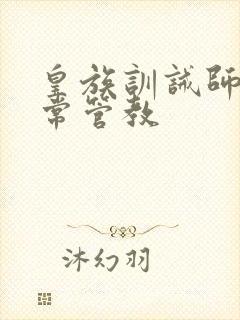 皇族訓誡師
常管教
沐幻羽